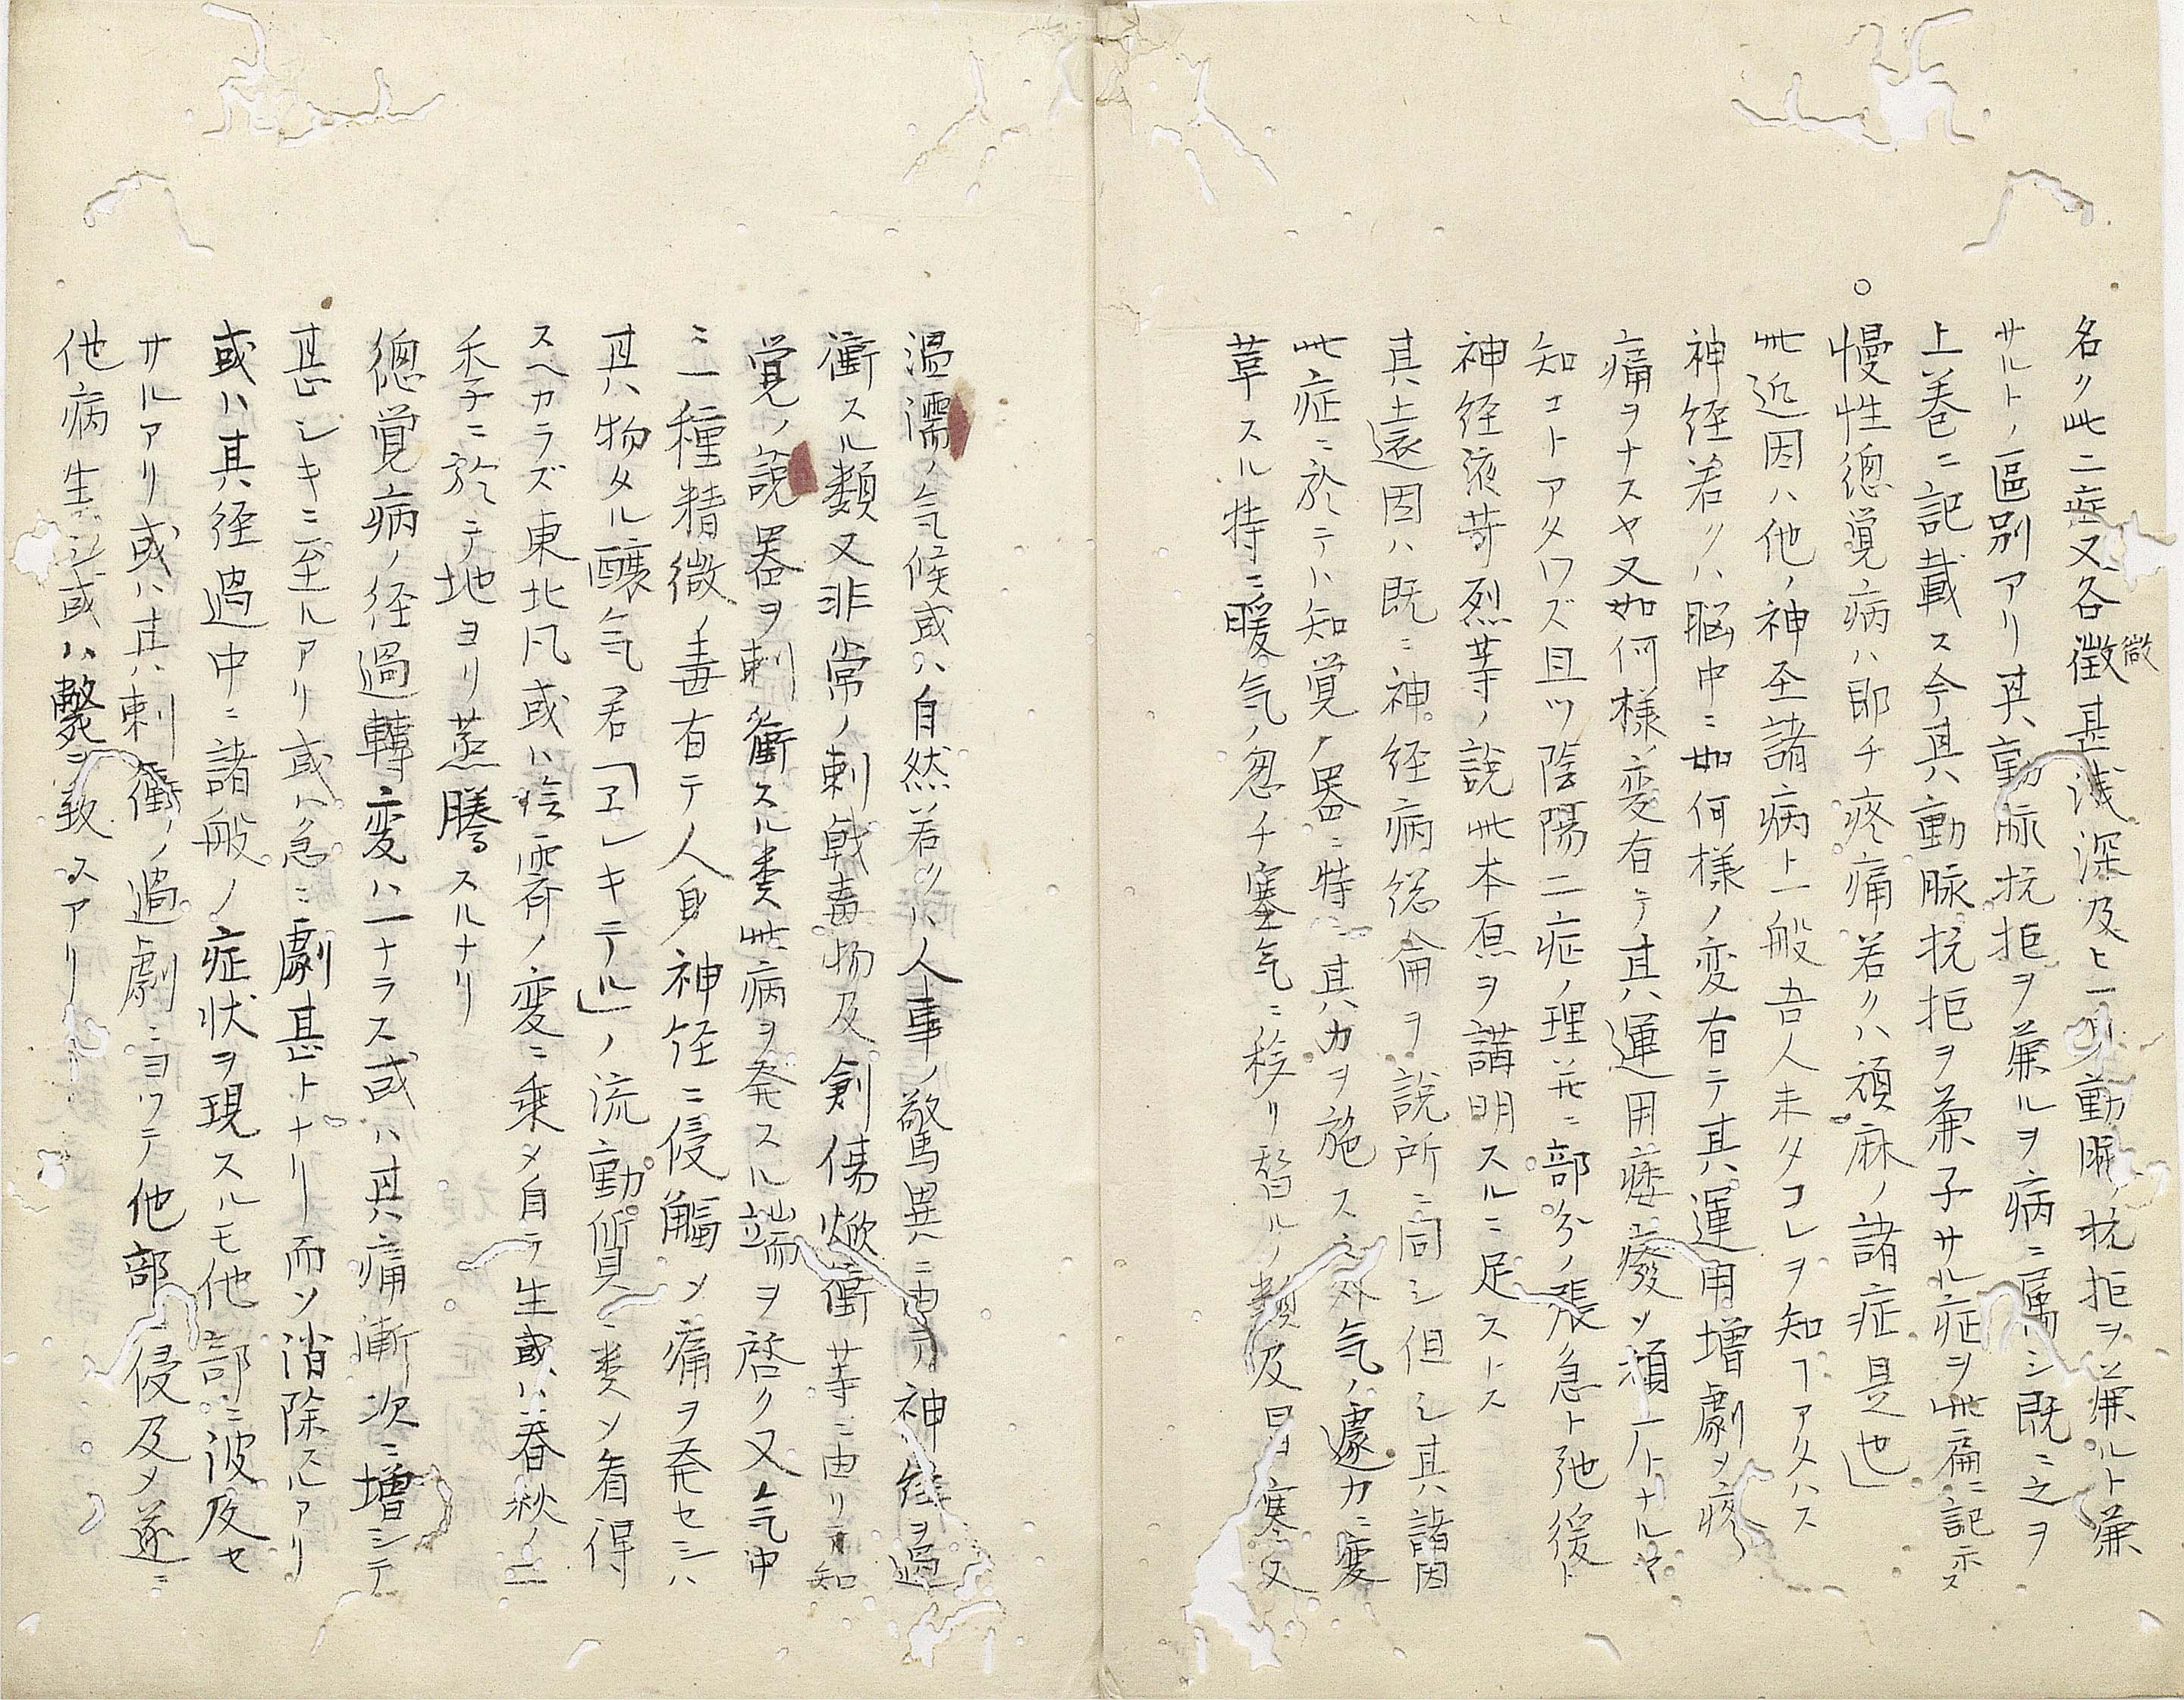 名ク此二症又各徴微甚浅深及ヒ一ツノ動脈ノ抗拒ヲ兼ルト兼
サルトノ區別アリ其動脈抗拒ヲ兼ルヲ病ニ属シ既ニ之ヲ
上巻ニ記載ス今其動脈抗拒ヲ兼子サル症ヲ此ニ扁ニ記示ス
○慢性總覚病ハ即チ疼痛若クハ頑麻ノ諸症是也
此近因ハ他ノ神圣諸病ト一般吾人未タコレヲ知ヿアタハス
神経若クハ脳中ニ如何様ノ変有テ其運用増劇シ疼
痛ヲナスヤ又如何様ノ変有テ其運用痿癈シ頑𪎲トナルヤ
知コトアタワズ且ツ陰陽二症ノ理并ニ部分ノ張急ト弛緩ト
神経液苛烈等ノ説此本原ヲ講明スルニ足ストス
其遠因ハ既ニ神経病総侖ヲ説所ニ同シ但シ其諸因
此症ニ於テハ知覚ノ器ニ特ニ其力ヲ施ス之外気ノ遽カニ変
革スル特ニ暖気ノ忽チ寒气ニ移リ替ルノ類及日ヨ寒又
温濡ノ气候或ハ自然若クハ人事ノ驚異ニ由テ神経ヲ過
衝スル類又非常ノ刺戟毒物及創傷焮衝等ニ由リテ知
覚ノ諸器ヲ刺衝スル类此病ヲ発スル端ヲ啓ク又气中
ニ一種精微ノ毒有テ人身神径ニ侵觸シ痛ヲ発セシハ
其物タル釀气君「ヱレキテル」ノ流動質ニ类シ看得
スヘカラズ東北凡或ハ陰霽ノ変ニ乗メ自ラ生或ハ春秋ノ二
禾子ニ於テ地ヨリ蒸騰スルナリ
總覚病ノ径過轉変ハ一ナラス或ハ其痛漸次ニ増シテ
甚シキニ至ルアリ或ハ急ニ劇甚トナリ而ソ消除スルアリ
或ハ其径過中ニ諸般ノ症状ヲ現スルモ他部ニ波及セ
サルアリ或ハ其刺衝ノ過劇ニヨツテ他部ニ侵及メ遂ニ
他病生シ或ハ斃ヲ致スアリ